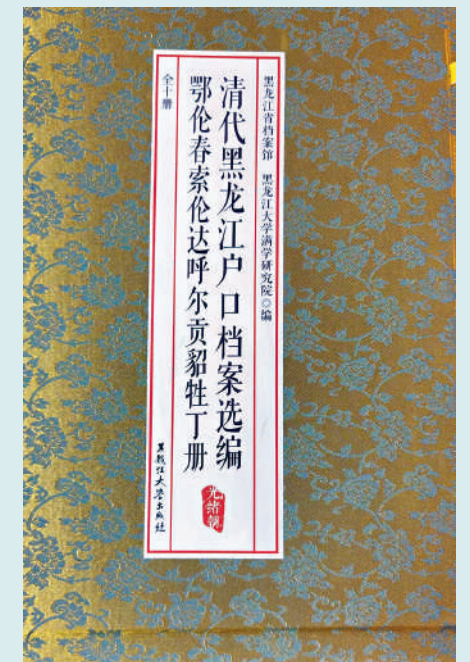 黑龙江省档案馆 黑龙江大学满学研究院◎编
清代黑龙江户口档案选编
鄂伦春索伦达呼尔贡貂牲丁册
光绪朝
全十册
黑龙江大学出版社